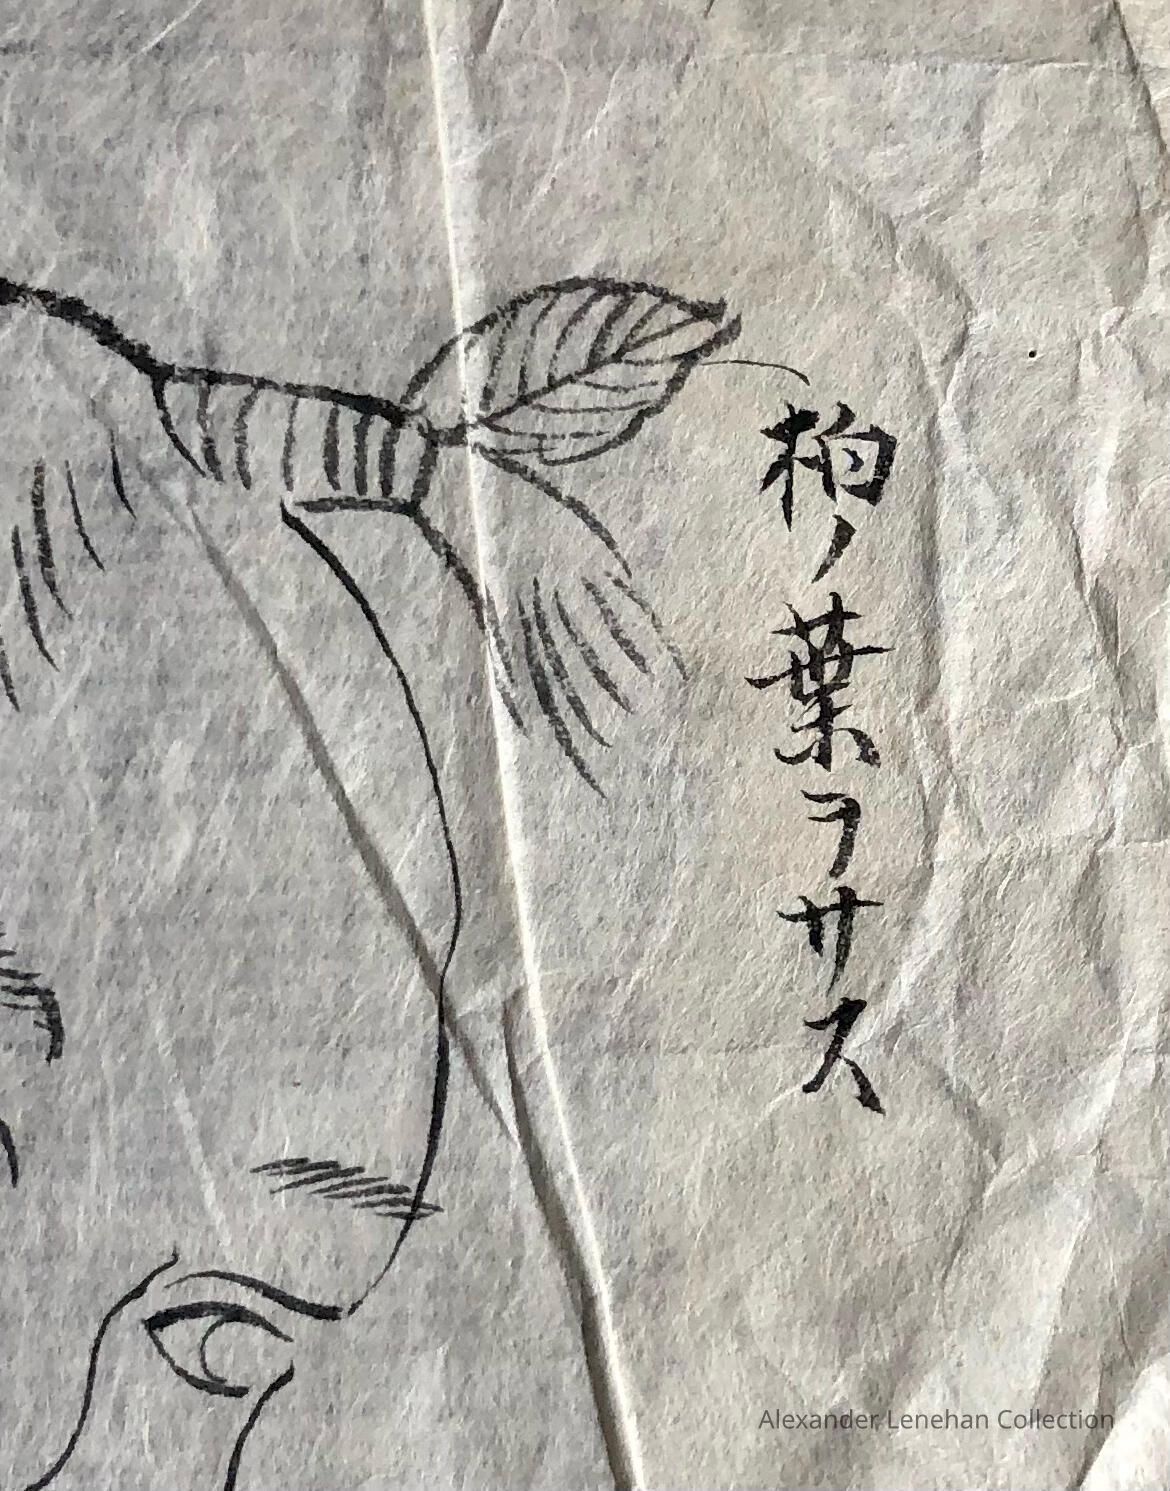 柏ノ葉ヲサス
Alexander Lenehan Collection